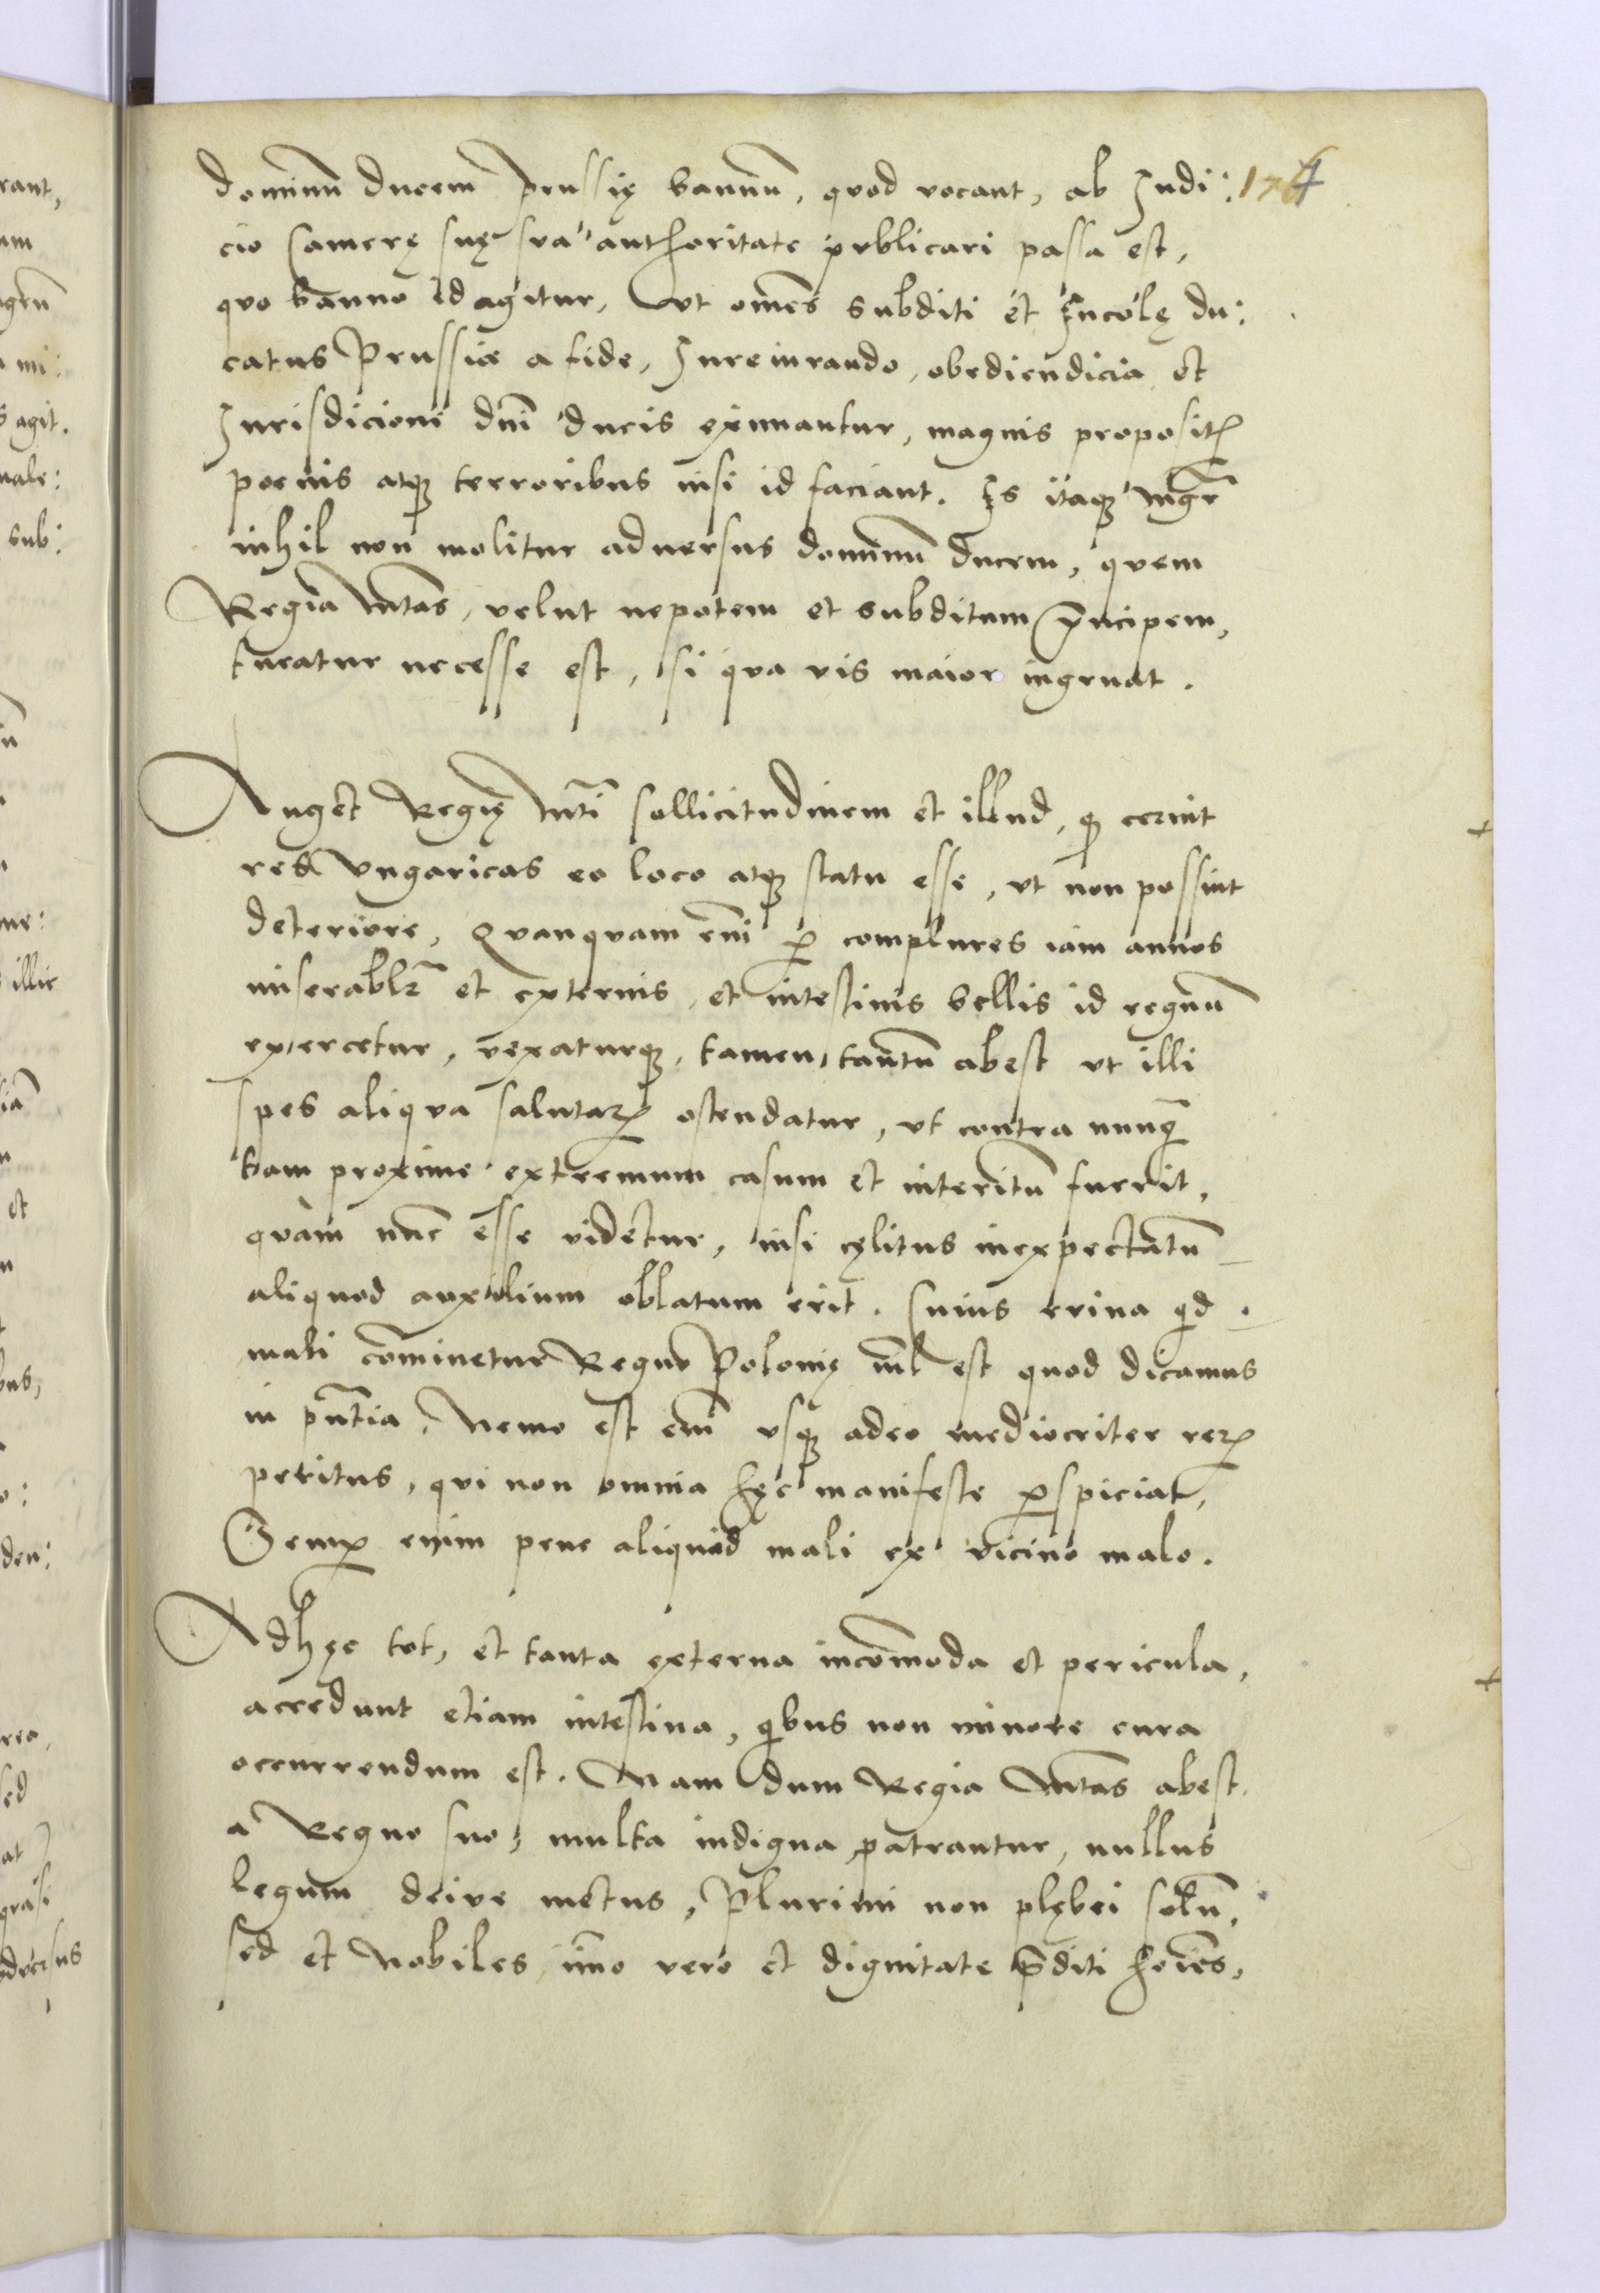 dominũ ducem Prussię bannũ, quod vocant, ab Judi: 174
cio Camerę suę sua authoritate publicari passa est,
quo banno id agitur, Vt om̃es subditi et Incolę du:
catus Prussiæ a fide, Jureiurando, obediendicia et
Jurisdicioni dñi ducis eximantur, magnis propositꝭ
poenis atqꝫ terroribus nisi id faciant. Is itaqꝫ Mgr̃
nihil non molitur aduersus dominũ ducem, quem
Regia Mtas̃, velut nepotem et subditum p̃ncipem,
tueatur necesse est, si qua vis maior ingruat.
Auget Regię Mtĩ sollicitudinem et illud, qꝫ cernit
res Vngaricas eo loco atqꝫ statu esse, vt non possint
deteriore, Quanquam em̃ ꝑ complures iam annos
miserablr̃ et externis, et intestinis bellis id regnũ
exercetur, vexaturqꝫ, tamen tantũ abest vt illi
spes aliqua salutaꝝ ostendatur, vt contra nunqꝫ̃
tam proxime extremum casum et interitũ fuerit,
quam nũc esse videtur, nisi cęlitus inexpectatũ
aliquod auxilium oblatum erit. Cuius ruina qd
mali com̃inetur Regno Polonię nil̃ est quod dicamus
in pñtia, Nemo est em̃ vsqꝫ adeo mediocriter reꝝ
peritus, qui non omnia hęc manifeste ꝑspiciat,
Semꝑ enim pene aliquid mali ex vicino malo.
Adhęc tot, et tanta externa incom̃oda et pericula,
accedunt etiam intestina, qibus non minore cura
occurrendum est. Nam dum Regia Mtas̃ abest
a Regno suo, multa indigna patrantur, nullus
legum deive metus, Plurimi non plębei solũ,
sed et Nobiles, im̃o vero et dignitate p̃diti hoĩes,